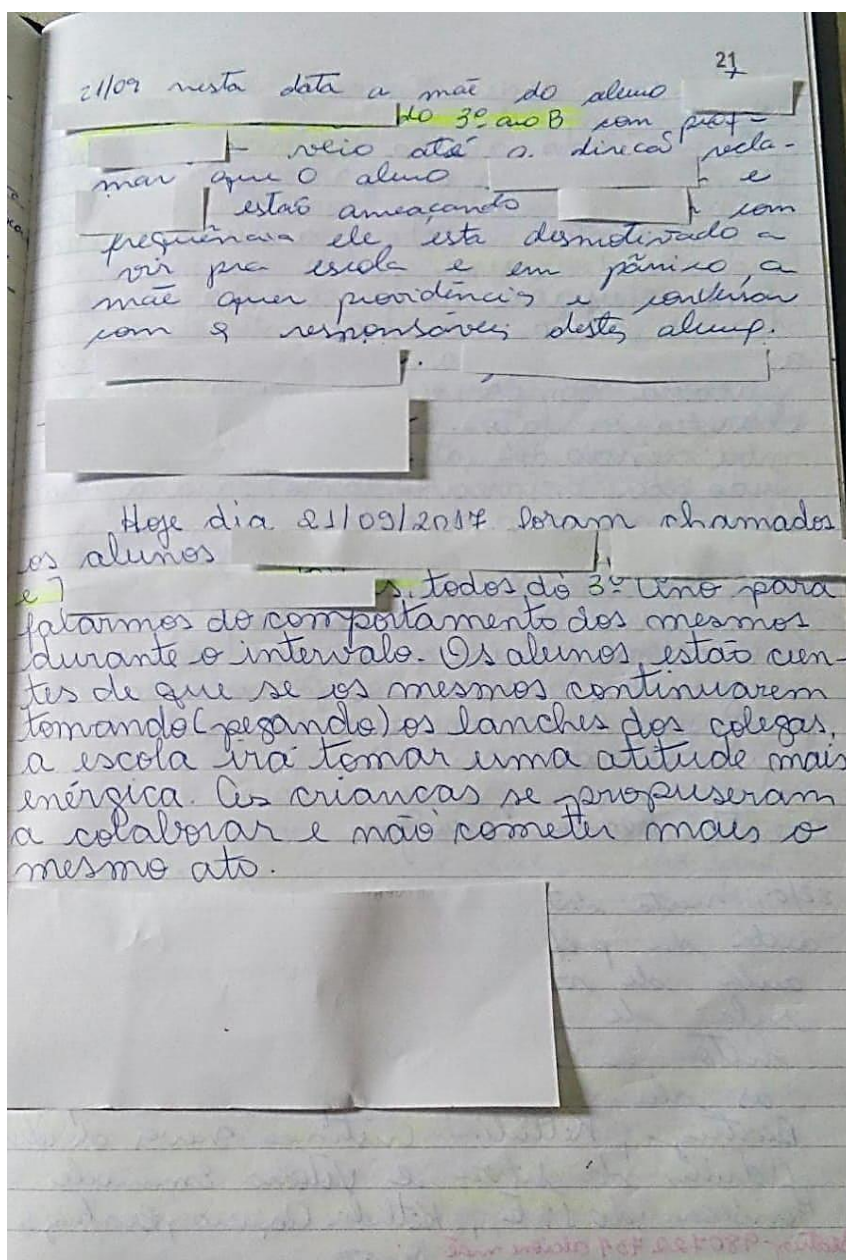 21
21/09 nesta data a mãe do aluno
do 3º ano B com prof-
veio até a direcã recla-
mar que o aluno e
estão ameaçando com
frequência ele esta desmotivado a
vir pra escola e em pânico, a
mãe quer providências e conversar
com os responsáveis destes alunos.
Hoje dia 21/09/2017 foram chamados
os alunos
e todos do 3º Ano para
falarmos do comportamento dos mesmos
durante o intervalo. Os alunos estão cien-
tes de que se os mesmos continuarem
tomando (pegando) os lanches dos colegas,
a escola irá tomar uma atitude mais
enérgica. As crianças se propuseram
a colaborar e não cometer mais o
mesmo ato.